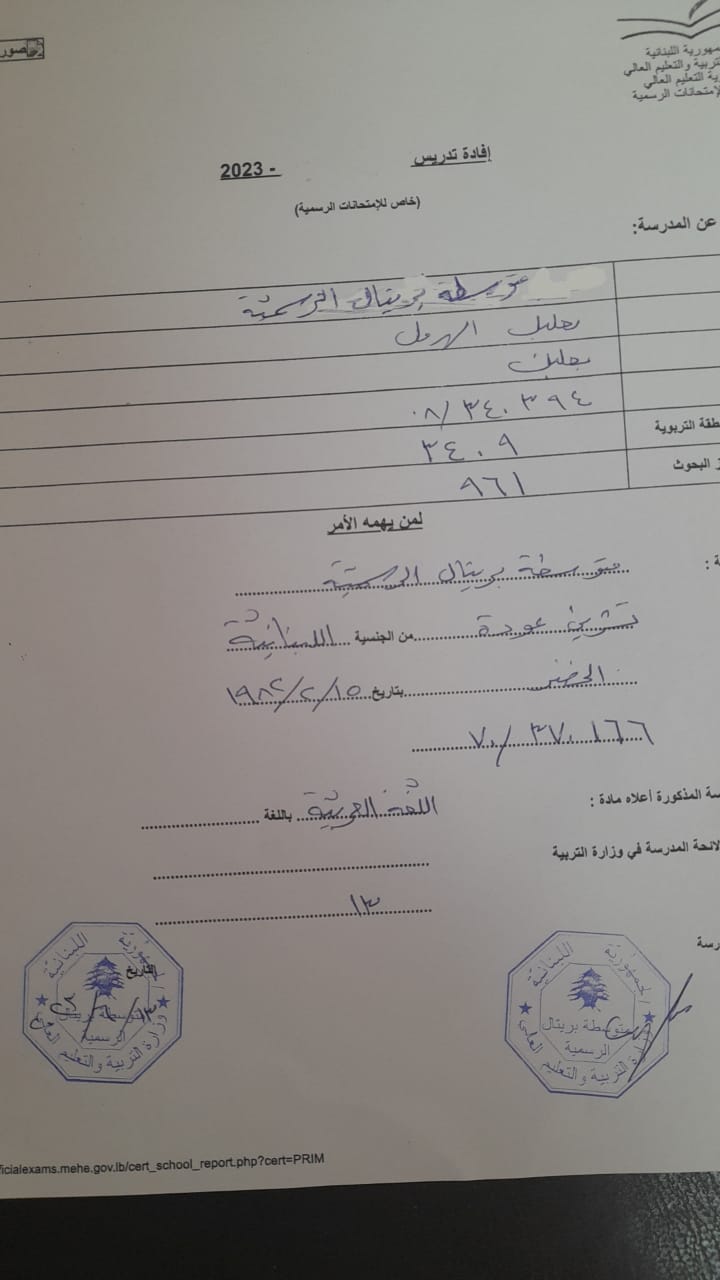 صور
الجمهورية اللبنانية
التربية والتعليم العالي
التعليم العالي
الإمتحانات الرسمية
إفادة تدريس - 2023
(خاص للإمتحانات الرسمية)
عن المدرسة:
متوسطة بريتال الرسمية
بعلبك الهرمل
بعلبك
٠٨/٣٤٠٣٩٤
التربوية ٣٤٠٩
البحوث ٩٦١
لمن يهمه الأمر
متوسطة بريتال الرسمية
عودة من الجنسية اللبنانيّة
الخضر بتاريخ ١٥/٢/١٩٨٢
٧٠/٣٧٠١٦٦
المذكورة أعلاه مادة : اللغة العربيّة باللغة
لائحة المدرسة في وزارة التربية
١٣
التاريخ
الجمهورية اللبنانية
متوسطة بريتال
الرسمية
وزارة التربية والتعليم العالي
الجمهورية اللبنانية
متوسطة بريتال
الرسمية
وزارة التربية والتعليم العالي
ficialexams.mehe.gov.lb/cert_school_report.php?cert=PRIM